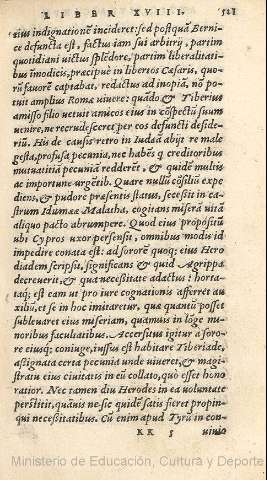 LIBER XVIII. 521
eius indignationẽ incideret: sed postquã Berni-
ce defuncta est, factus iam sui arbitrij, partim
quotidiani victus splẽdore, partim liberalitati-
bus ĩmodicis, præcipuè in libertos Cæsaris, quo-
rũ fauorẽ captabat, redactus ad inopiã, nõ po-
tuit amplius Romæ viuere: quãdo & Tiberius
amisso filio vetuit amicos eius in cõspectũ suum
venire, ne recrudesceret per eos defuncti deside-
riũ. His de causis retro in Iudæã abijt re male
gesta, profusa pecunia, nec habẽs q̃ creditoribus
mutuatitiã pecuniã redderẽt, & quidẽ multis
ac importunè urgẽtib. Quare nullũ cõsiliũ expe-
diens, & pudore præsentis status, secessit in ca-
strum Idumææ Malatha, cogitans miserã vitã
aliquo pacto abrumpere. Quod eius propositũ
ubi Cypros uxor persensit, omnibus modis id
impedire conata est: ad sororẽ quoq; eius Hero
diadem scripsit, significans & quid Agrippa
decreuerit, & qua necessitate adactus: horta-
taq; est eam ut pro iure cognationis afferret au
xiliũ, et se in hoc imitaretur, quæ quantũ posset
subleuaret eius miseriam, quamuis in lõge mi-
noribus facultatibus. Accersitus igitur à soro-
re eiusq; coniuge, iussus est habitare Tiberiade,
assignata certa pecunia unde viueret, & magi-
stratu eius ciuitatis in eũ collato, quò esset hono
ratior. Nec tamen diu Herodes in ea voluntate
perstitit, quãuis ne sic quidẽ satis faceret propin-
qui necessitatibus. Cũ enim apud Tyrũ in con-
KK 5 uiuio
Ministerio de Educación, Cultura y Deporte